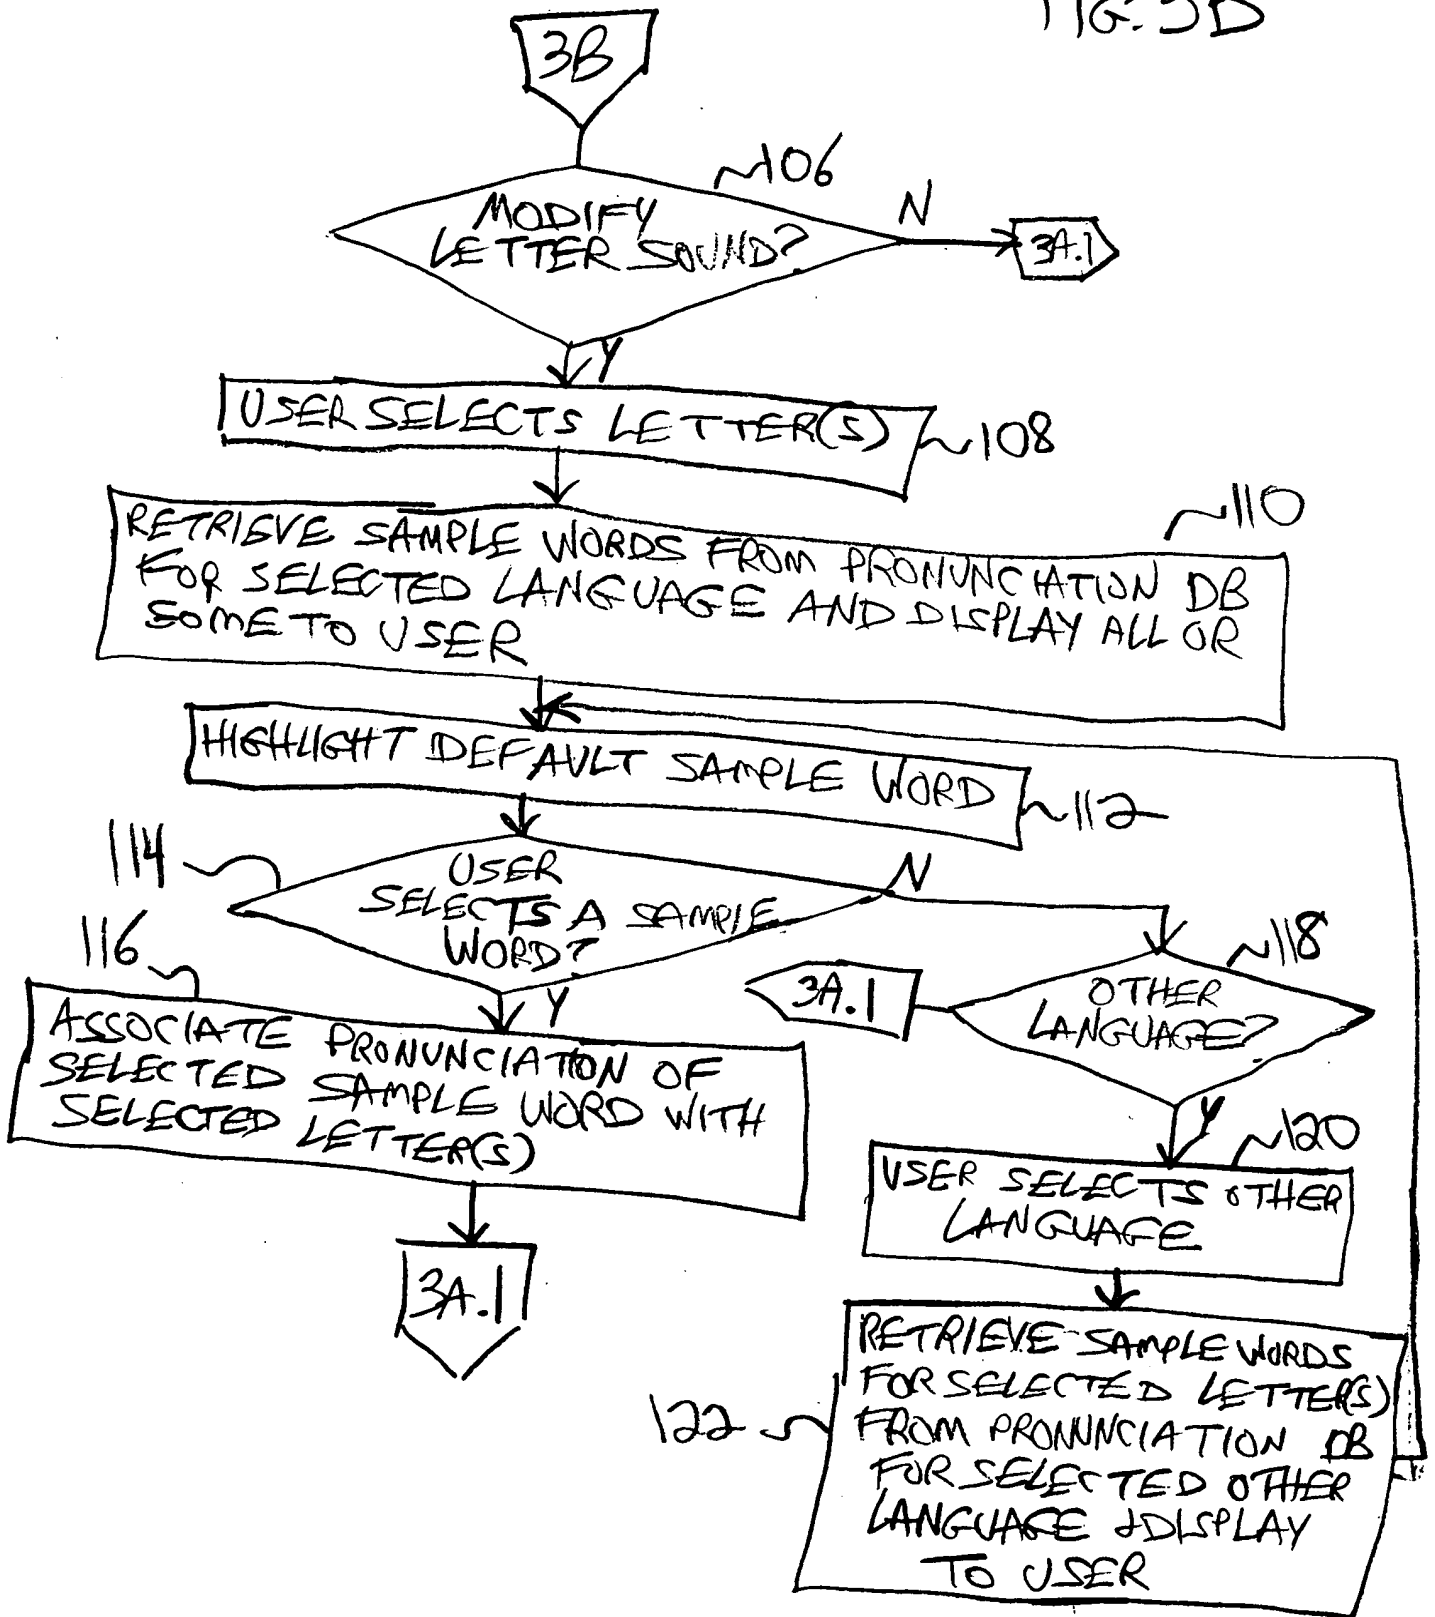 FIG. 3B
3B
106
MODIFY
LETTER SOUND?
N
3A.1
Y
USER SELECTS LETTER(S)
108
110
RETRIEVE SAMPLE WORDS FROM PRONUNCIATION DB
FOR SELECTED LANGUAGE AND DISPLAY ALL OR
SOME TO USER
HIGHLIGHT DEFAULT SAMPLE WORD
112
114
USER
SELECTS A SAMPLE
WORD?
N
Y
116
ASSOCIATE PRONUNCIATION OF
SELECTED SAMPLE WORD WITH
SELECTED LETTER(S)
3A.1
118
OTHER
LANGUAGE?
3A.1
Y
120
USER SELECTS OTHER
LANGUAGE
122
RETRIEVE SAMPLE WORDS
FOR SELECTED LETTER(S)
FROM PRONUNCIATION DB
FOR SELECTED OTHER
LANGUAGE & DISPLAY
TO USER